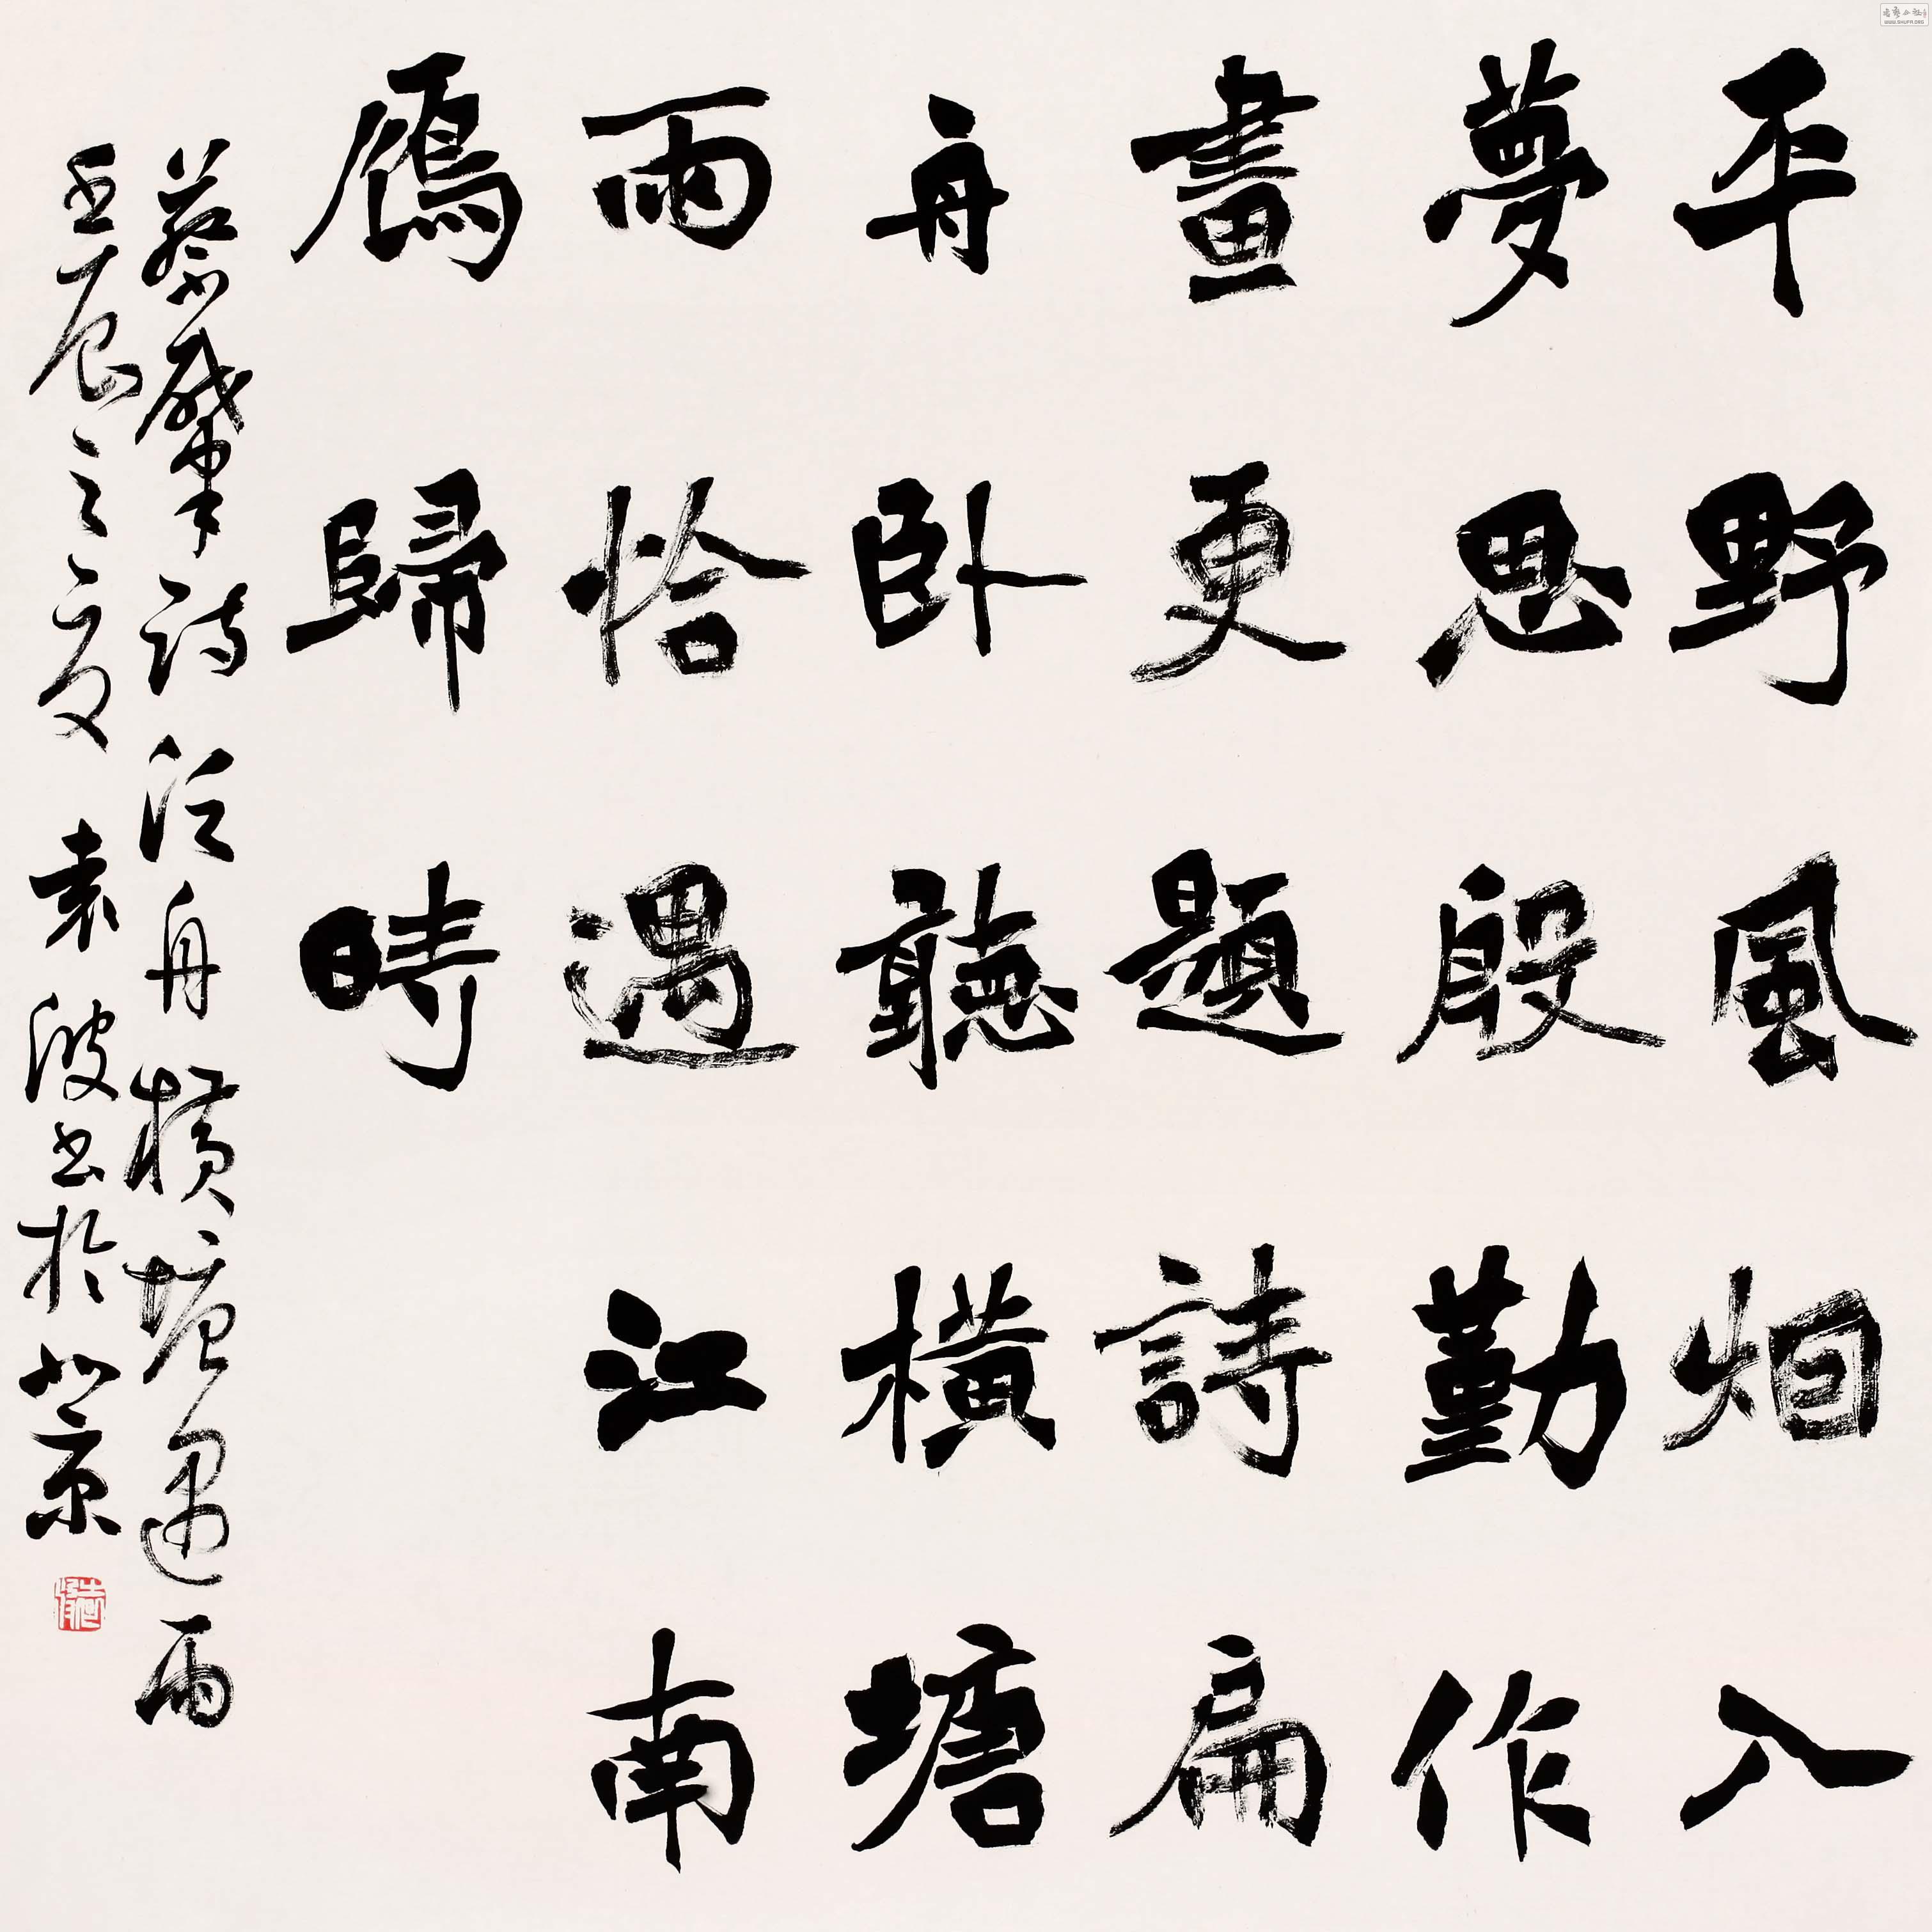 平野風烟入
夢思殷勤作
畫更題詩扁
舟卧聽橫塘
雨恰遇江南
鴈歸時
蔡肇詩泛舟橫塘遇雨
壬辰之夏 袁波书於北京
WWW.SHUFA.ORG